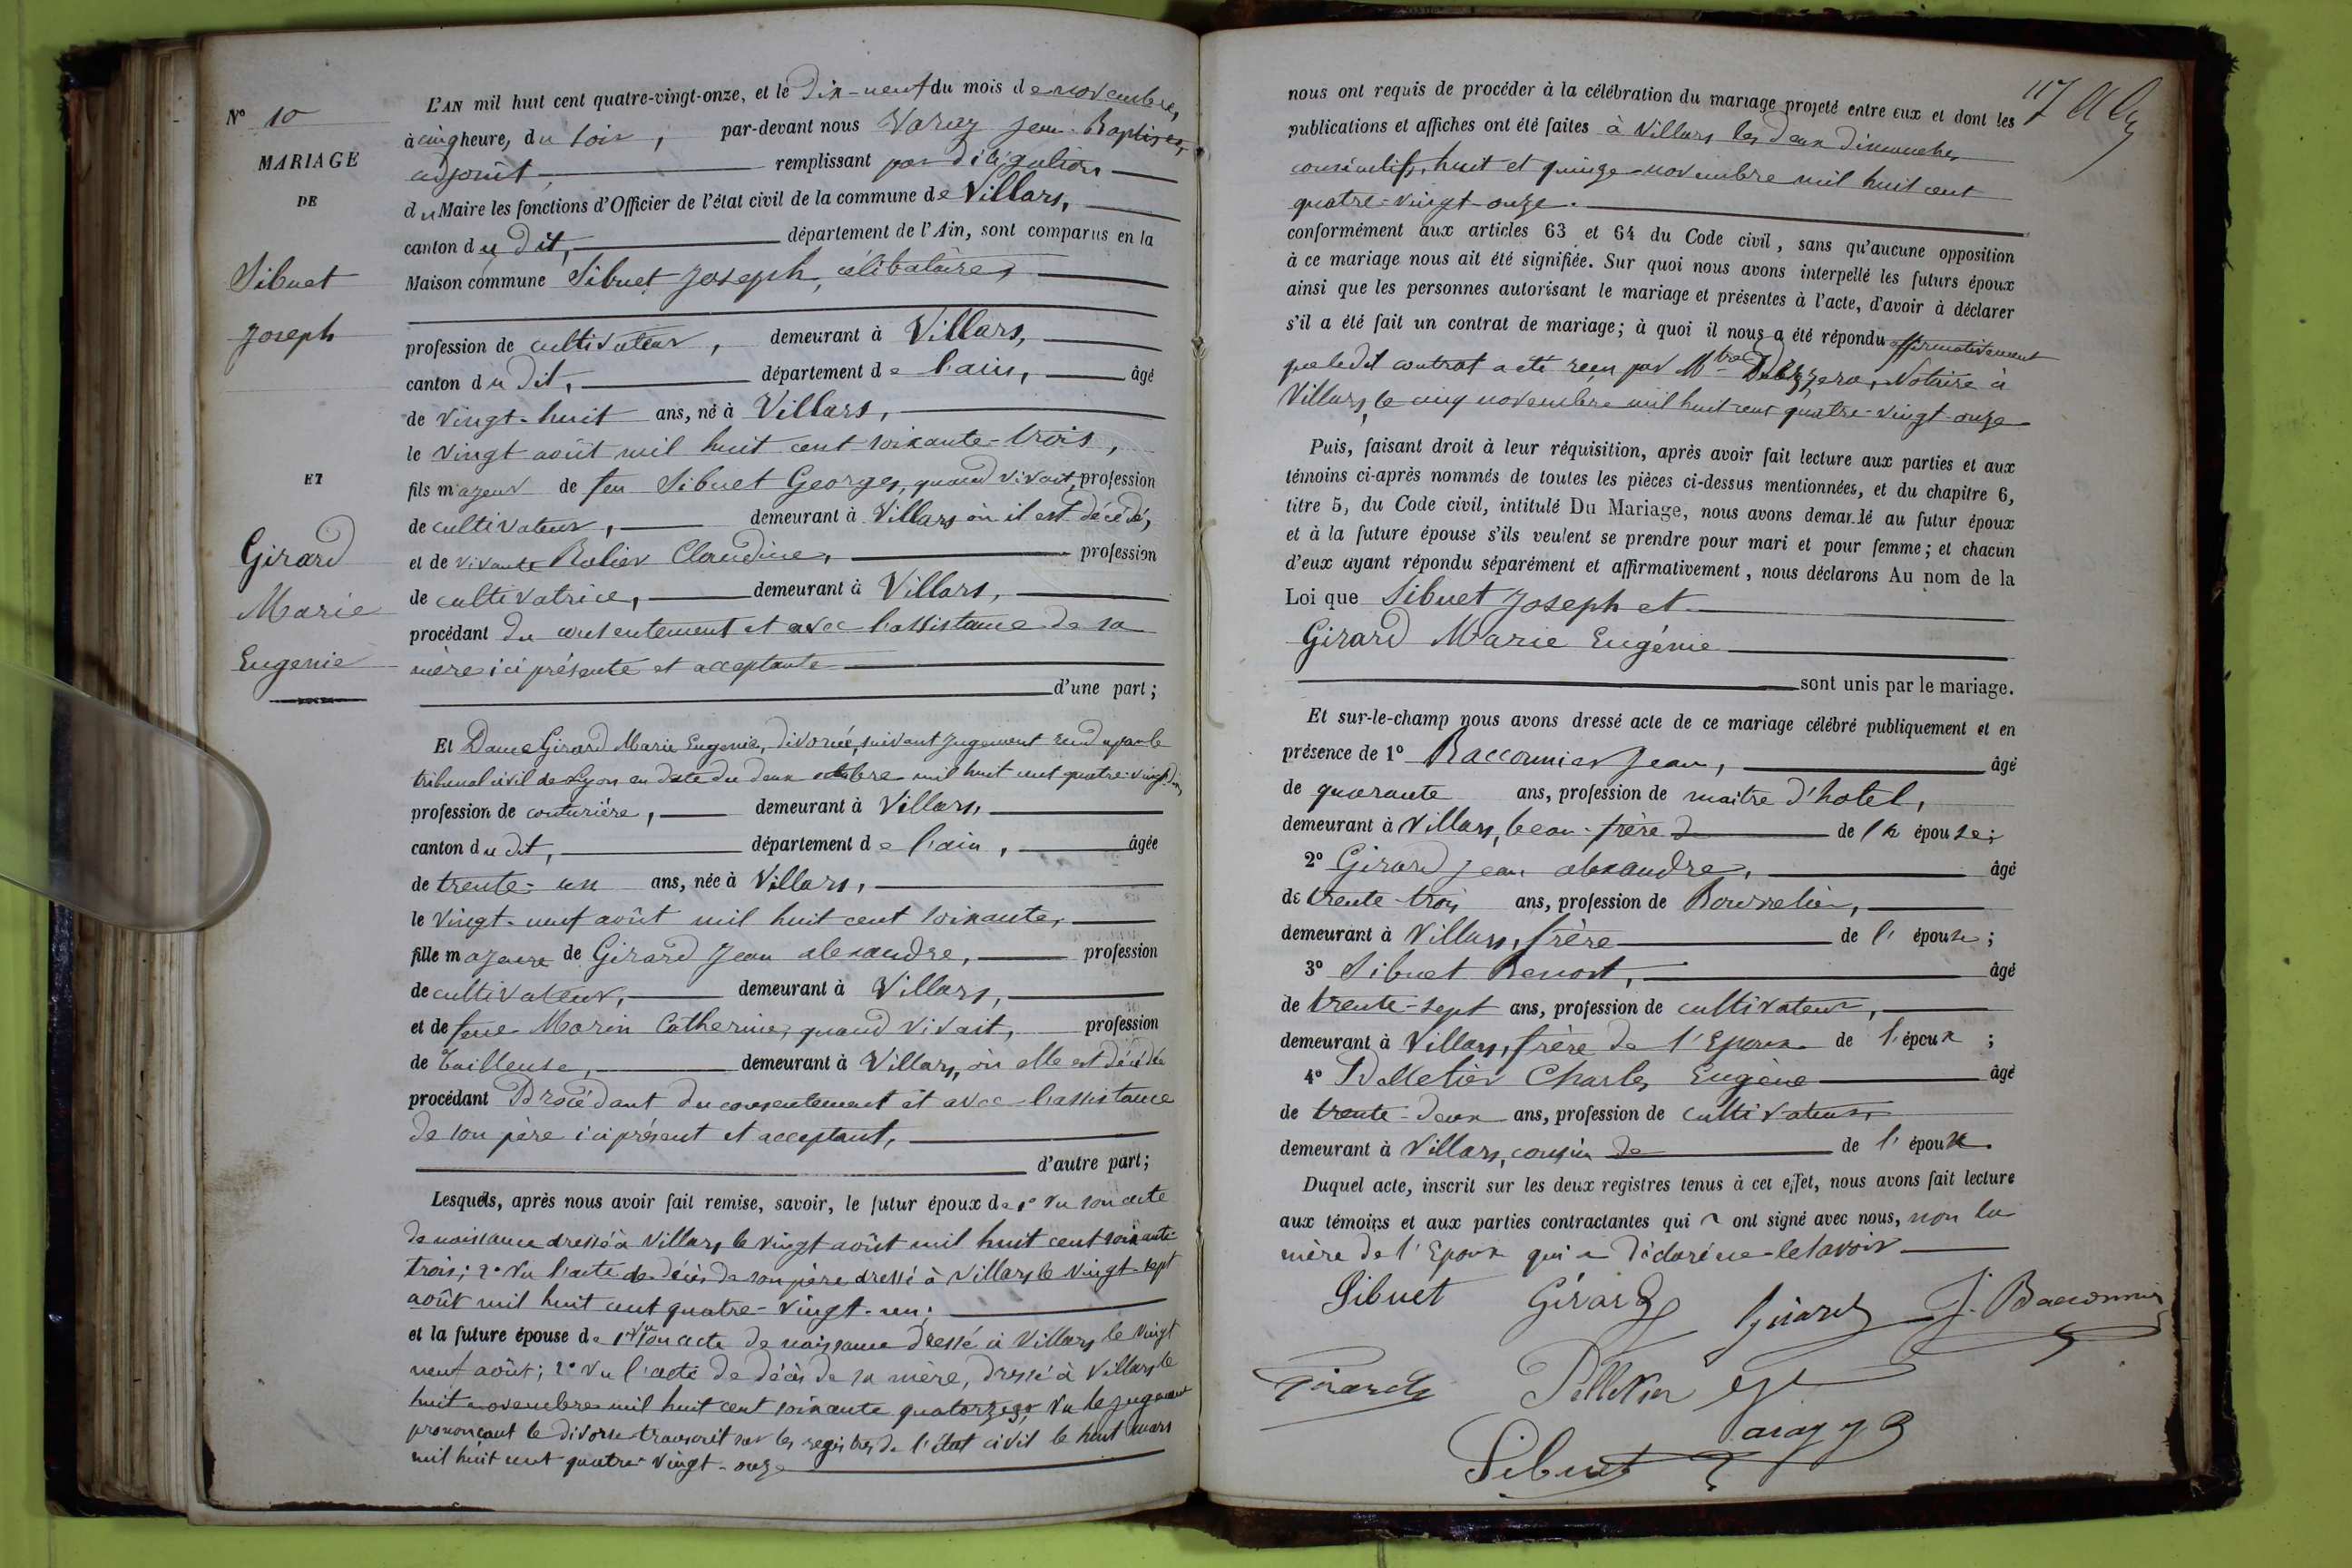 N° 10
MARIAGE
DE
Sibuet
Joseph
ET
Girard
Marie
Eugenie
L'AN mil huit cent quatre-vingt-onze, et le Dix-neuf du mois de novembre,
à cinq heure, du soir, par-devant nous Varay Jean-Baptiste,
adjoint, remplissant par délégation
du Maire les fonctions d'Officier de l'état civil de la commune de Villars,
canton du dit, département de l'Ain, sont comparus en la
Maison commune Sibuet Joseph, célibataire,
profession de cultivateur, demeurant à Villars,
canton du dit, département de l'ain, âgé
de vingt-huit ans, né à Villars,
le vingt août mil huit cent soixante-trois,
fils majeur de feu Sibuet Georges, quand vivait, profession
de cultivateur, demeurant à Villars où il est décédé,
et de vivante Rolier Claudine, profession
de cultivatrice, demeurant à Villars,
procédant du consentement et avec l'assistance de sa
mère ici présente et acceptante
d'une part;
Et Dame Girard Marie Eugenie, divorcée, suivant jugement rendu par le
tribunal civil de Lyon en date du deux octobre mil huit cent quatre-vingt-dix,
profession de couturière, demeurant à Villars,
canton du dit, département de l'ain, âgée
de trente-un ans, née à Villars,
le vingt-neuf août mil huit cent soixante,
fille majeure de Girard Jean alexandre, profession
de cultivateur, demeurant à Villars,
et de feue Morin Catherine, quand vivait, profession
de Tailleuse, demeurant à Villars, où elle est décédée
procédant Procédant du consentement et avec l'assistance
de son père ici présent et acceptant,
d'autre part;
Lesquels, après nous avoir fait remise, savoir, le futur époux de 1° Vu son acte
de naissance dressé à Villars le vingt août mil huit cent soixante-
trois; 2° Vu l'acte de décès de son père dressé à Villars le vingt-sept
août mil huit cent quatre-vingt-un;
et la future épouse de 1° Vu son acte de naissance dressé à Villars le vingt
neuf août; 2° Vu l'acte de décès de sa mère, dressé à Villars le
huit novembre mil huit cent soixante quatorze; Vu le jugement
prononçant le divorce transcrit sur les registres de l'état civil le huit mars
mil huit cent quatre-vingt-onze
117
nous ont requis de procéder à la célébration du mariage projeté entre eux et dont les
publications et affiches ont été faites à Villars les deux dimanches
consécutifs, huit et quinze novembre mil huit cent
quatre-vingt-onze.
conformément aux articles 63 et 64 du Code civil, sans qu'aucune opposition
à ce mariage nous ait été signifiée. Sur quoi nous avons interpellé les futurs époux
ainsi que les personnes autorisant le mariage et présentes à l'acte, d'avoir à déclarer
s'il a été fait un contrat de mariage; à quoi il nous a été répondu affirmativement
que le dit contrat a été reçu par Mtre Notaire à
Villars, le cinq novembre mil huit cent quatre-vingt-onze
Puis, faisant droit à leur réquisition, après avoir fait lecture aux parties et aux
témoins ci-après nommés de toutes les pièces ci-dessus mentionnées, et du chapitre 6,
titre 5, du Code civil, intitulé Du Mariage, nous avons demandé au futur époux
et à la future épouse s'ils veulent se prendre pour mari et pour femme; et chacun
d'eux ayant répondu séparément et affirmativement, nous déclarons Au nom de la
Loi que Sibuet Joseph et
Girard Marie Eugénie
sont unis par le mariage.
Et sur-le-champ nous avons dressé acte de ce mariage célébré publiquement et en
présence de 1° Baconnier Jean, âgé
de quarante ans, profession de maître d'hotel,
demeurant à Villars, beau-frère de l'a épouse;
2° Girard Jean alexandre, âgé
de trente-trois ans, profession de Bourrelier,
demeurant à Villars, frère de l'épouse;
3° Sibuet Benoit, âgé
de trente-sept ans, profession de cultivateur,
demeurant à Villars, frère de l'Epoux de l'époux;
4° Pelletier Charles Eugène âgé
de trente-deux ans, profession de cultivateur,
demeurant à Villars, cousin de de l'époux.
Duquel acte, inscrit sur les deux registres tenus à cet effet, nous avons fait lecture
aux témoins et aux parties contractantes qui ont signé avec nous, non la
mère de l'Epoux qui a déclaré ne le savoir
Sibuet Girard Girard J. Baconnier
Girard Pelletier
Varay
Sibuet